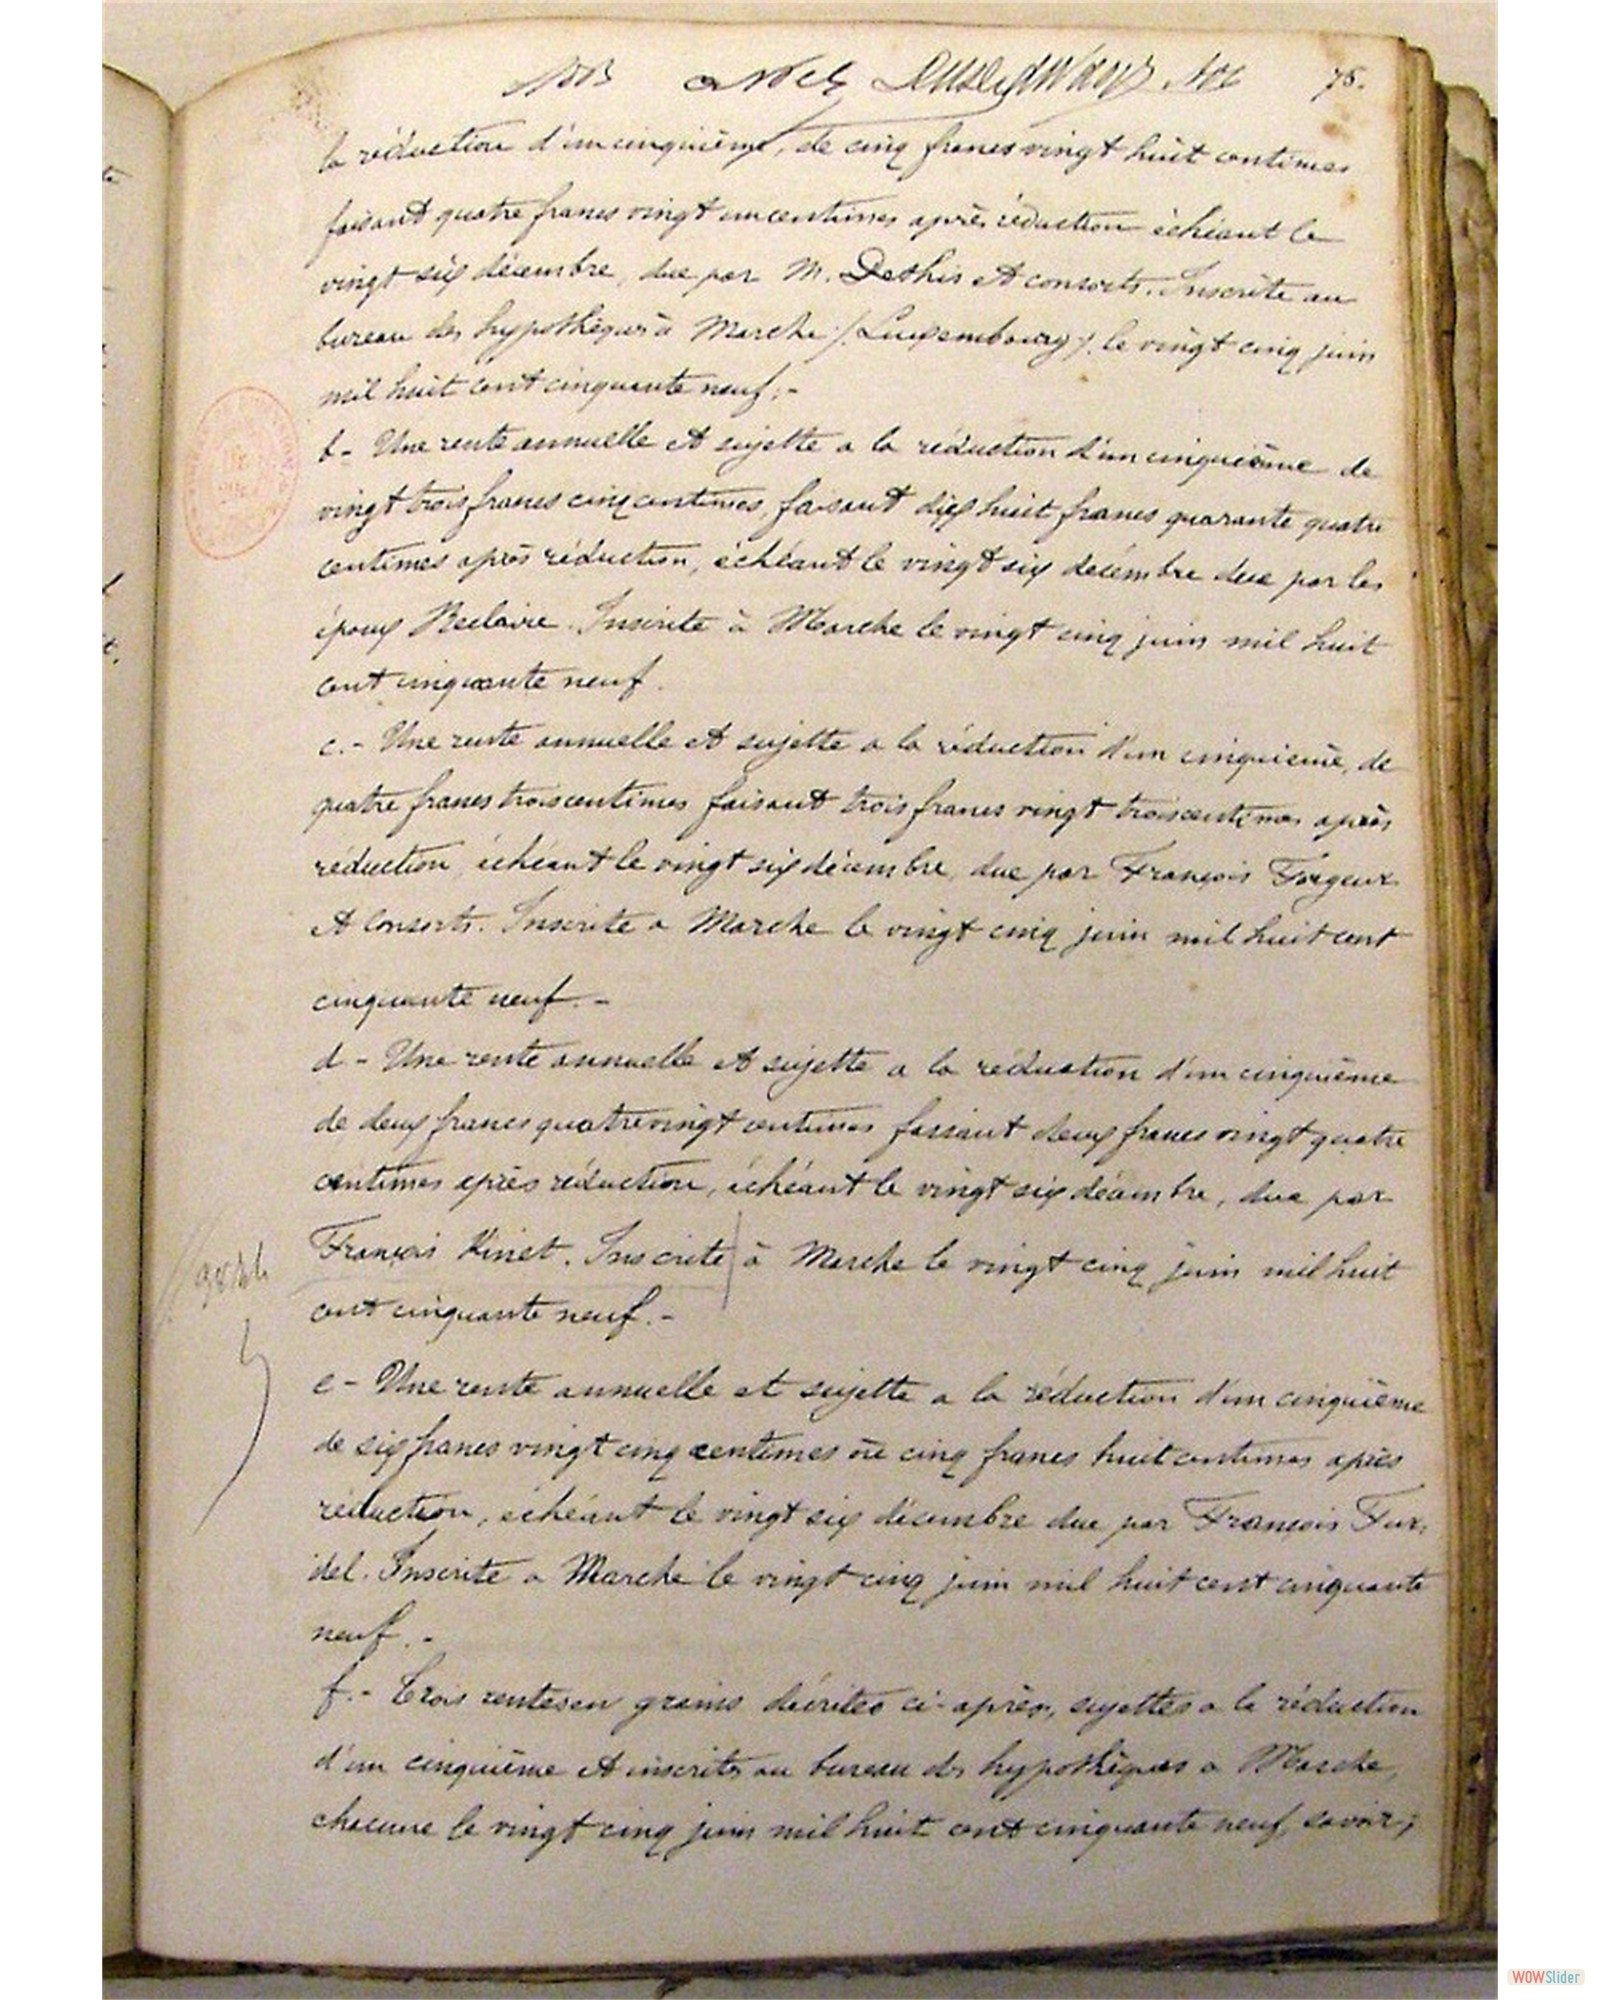 76.
la réduction d'un cinquième, de cinq francs vingt huit centimes
faisant quatre francs vingt un centimes après réduction échéant le
vingt six décembre, due par M. Dethis et consorts. Inscrite au
bureau des hypothèques à Marche /Luxembourg/ le vingt cinq juin
mil huit cent cinquante neuf;-
b- Une rente annuelle et sujette a la réduction d'un cinquième de
vingt trois francs cinq centimes, faisant dix huit francs quarante quatre
centimes après réduction, échéant le vingt six décembre due par les
époux Reclaire. Inscrite à Marche le vingt cinq juin mil huit
cent cinquante neuf.
c.- Une rente annuelle et sujette a la réduction d'un cinquième, de
quatre francs trois centimes faisant trois francs vingt trois centimes après
réduction, échéant le vingt six décembre, due par François Forgeux
et consorts. Inscrite a Marche le vingt cinq juin mil huit cent
cinquante neuf.-
d - Une rente annuelle et sujette a la réduction d'un cinquième
de deux francs quatre vingt centimes faisant deux francs vingt quatre
centimes après réduction, échéant le vingt six décembre, due par
François Kinet. Inscrite à Marche le vingt cinq juin mil huit
cent cinquante neuf.-
e- Une rente annuelle et sujette a la réduction d'un cinquième
de six francs vingt cinq centimes ou cinq francs huit centimes après
réduction, échéant le vingt six décembre due par François Fur,
del. Inscrite a Marche le vingt cinq juin mil huit cent cinquante
neuf.-
f.- Trois rentes en grains décrites ci-après, sujettes a la réduction
d'un cinquième et inscrites au bureau des hypothèques a Marche,
chacune le vingt cinq juin mil huit cent cinquante neuf, savoir;
WOWSlider